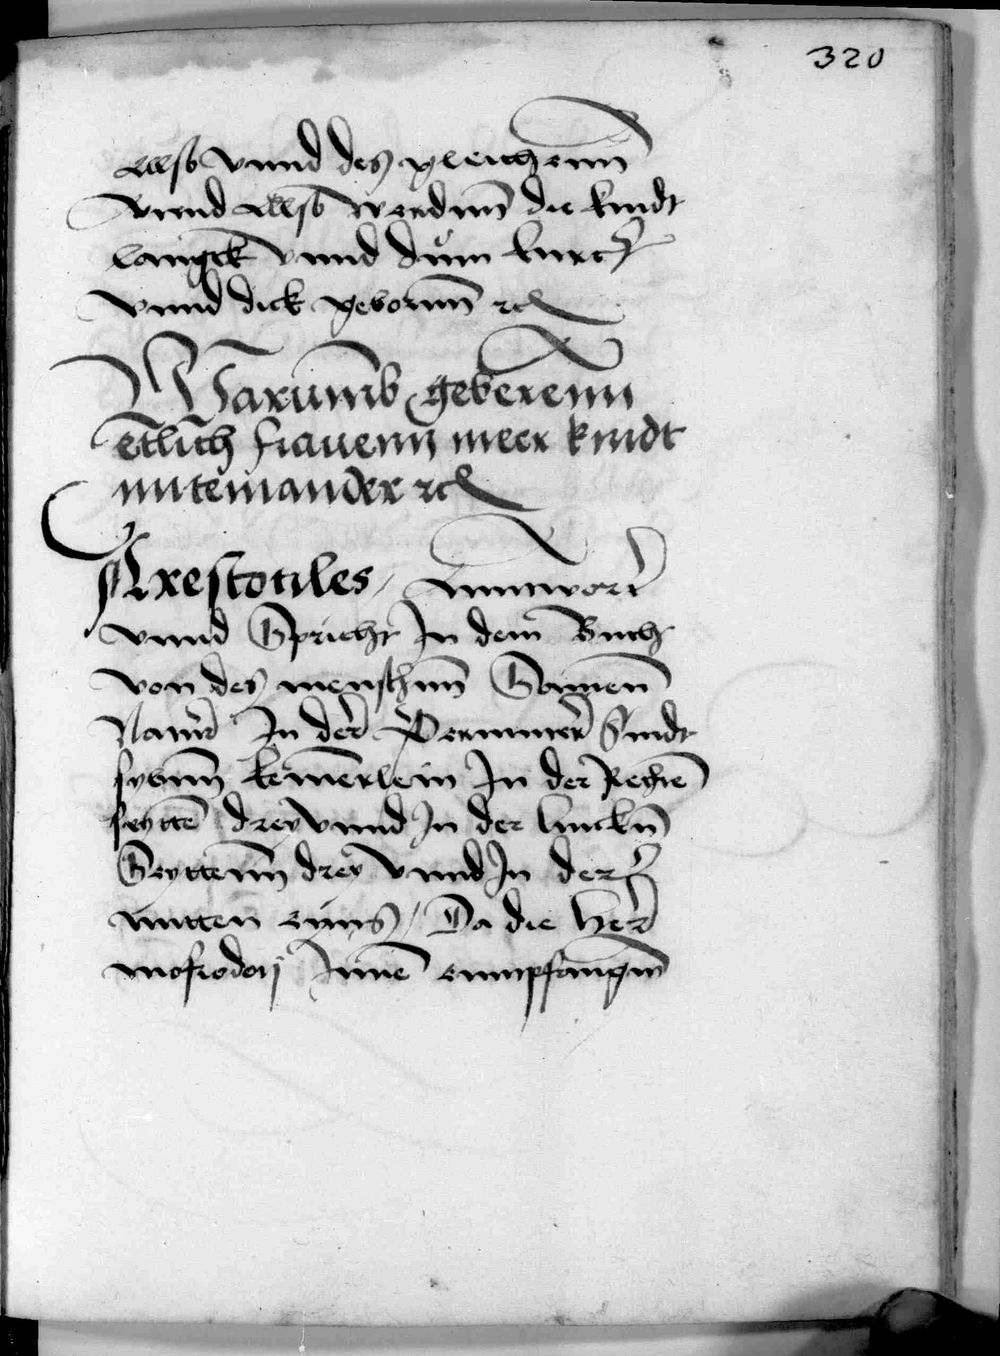 320
allso vnnd des gleichenn
vnnd allso werdenn die kindt
langck vnnd dün kurcz
vnnd dick geborenn ꝛc
Warumb geberenn
etlich frauenn meer kindt
miteinander ꝛc
Arestotiles / anntwort
vnnd Spricht In dem Buch
von des menschenn Samen
Natur In der Permutter sindt
sybenn kemerlein In der Rechte
seytte drey vnnd In der linckn
Seyttenn drey vnnd In der
mitten eyns / Da die Her
mofrodorj Inne enntpfangen